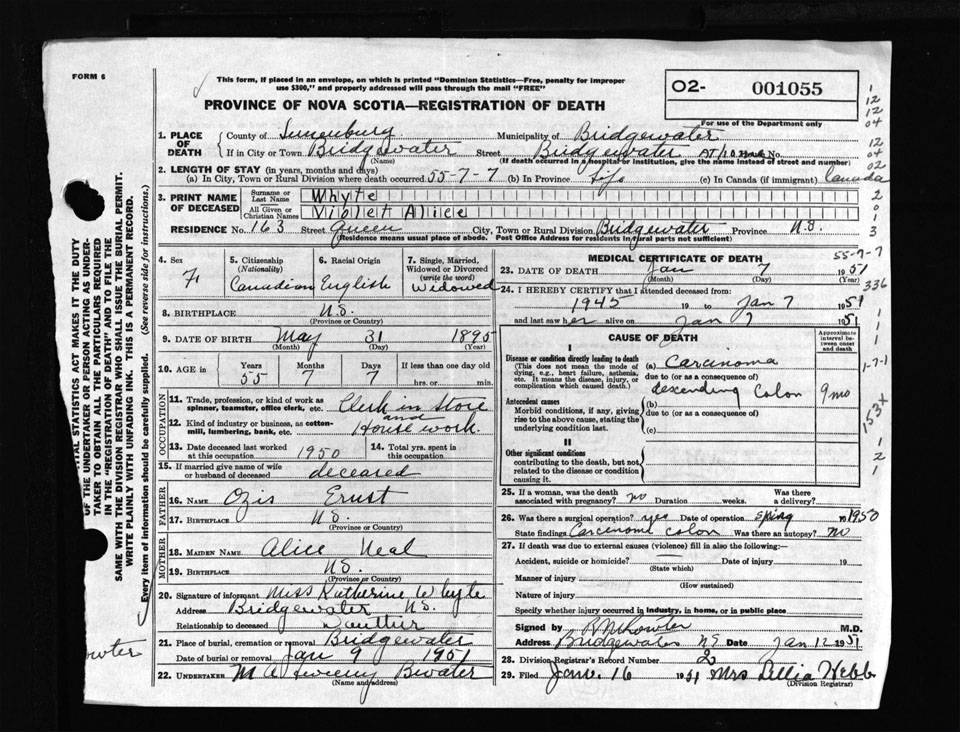 FORM 6
This form, if placed in an envelope, on which is printed "Dominion Statistics—Free, penalty for improper
use $300," and properly addressed will pass through the mail "FREE"
PROVINCE OF NOVA SCOTIA—REGISTRATION OF DEATH
O2- 001055
For use of the Department only
1. PLACE OF DEATH
County of Lunenburg Municipality of Bridgewater
If in City or Town Bridgewater Street Bridgewater AT No.
(Name) (If death occurred in a hospital or institution, give the name instead of street and number)
2. LENGTH OF STAY (in years, months and days)
(a) In City, Town or Rural Division where death occurred 55-7-7 (b) In Province Life (c) In Canada (if immigrant) Canada
3. PRINT NAME OF DECEASED
Surname or Last Name Whyte
All Given or Christian Names Violet Alice
RESIDENCE No. 163 Street Queen City, Town or Rural Division Bridgewater Province N.S.
(Residence means usual place of abode. Post Office Address for residents in rural parts not sufficient)
4. Sex F
5. Citizenship (Nationality) Canadian
6. Racial Origin English
7. Single, Married, Widowed or Divorced (write the word) Widowed
8. BIRTHPLACE N.S.
(Province or Country)
9. DATE OF BIRTH May 31 1895
(Month) (Day) (Year)
10. AGE in Years Months Days If less than one day old
55 7 7 hrs. or min.
OCCUPATION
11. Trade, profession, or kind of work as spinner, teamster, office clerk, etc. Clerk in Store
and
12. Kind of industry or business, as cotton-mill, lumbering, bank, etc. House work.
13. Date deceased last worked at this occupation 1950
14. Total yrs. spent in this occupation
15. If married give name of wife or husband of deceased deceased
FATHER
16. NAME Ozis Ernst
17. BIRTHPLACE N.S.
(Province or Country)
MOTHER
18. MAIDEN NAME Alice Neal
19. BIRTHPLACE N.S.
(Province or Country)
20. Signature of informant Miss Katherine Whyte
Address Bridgewater N.S.
Relationship to deceased Daughter
21. Place of burial, cremation or removal Bridgewater
Date of burial or removal Jan 9 1951
22. UNDERTAKER M A Sweeny Bwater
(Name and address)
MEDICAL CERTIFICATE OF DEATH
23. DATE OF DEATH Jan 7 1951
(Month) (Day) (Year)
24. I HEREBY CERTIFY that I attended deceased from:
1945 19 to Jan 7 1951
and last saw her alive on Jan 7 1951
CAUSE OF DEATH
Approximate interval between onset and death
I
Disease or condition directly leading to death
(This does not mean the mode of dying, e.g., heart failure, asthenia, etc. It means the disease, injury, or complication which caused death.)
(a) Carcinoma
due to (or as a consequence of)
descending Colon 9 mo
Antecedent causes
Morbid conditions, if any, giving rise to the above cause, stating the underlying condition last.
(b)
due to (or as a consequence of)
(c)
II
Other significant conditions
contributing to the death, but not related to the disease or condition causing it.
25. If a woman, was the death associated with pregnancy? no Duration weeks. Was there a delivery?
26. Was there a surgical operation? yes Date of operation Spring 1950
State findings Carcinoma colon Was there an autopsy? no
27. If death was due to external causes (violence) fill in also the following:—
Accident, suicide or homicide? Date of injury 19
(State which)
Manner of injury
(How sustained)
Nature of injury
Specify whether injury occurred in industry, in home, or in public place
Signed by M.D.
Address Bridgewater NS Date Jan 12 1951
28. Division Registrar's Record Number 2
29. Filed Jan. 16 1951 Mrs Lellia Webb
(Division Registrar)
1
12
12
04
12
04
02
2
0
0
3
55-7-7
336
1
1
1
1-7-1
153x
1
2
1
VITAL STATISTICS ACT MAKES IT THE DUTY
OF THE UNDERTAKER OR PERSON ACTING AS UNDER-
TAKER TO OBTAIN ALL THE PARTICULARS REQUIRED
IN THE "REGISTRATION OF DEATH" AND TO FILE THE
SAME WITH THE DIVISION REGISTRAR WHO SHALL ISSUE THE BURIAL PERMIT.
WRITE PLAINLY WITH UNFADING INK. THIS IS A PERMANENT RECORD.
Every item of information should be carefully supplied. (See reverse side for instructions.)